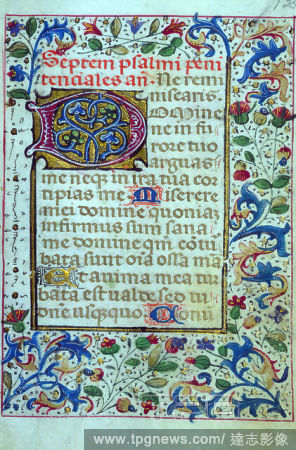 Septem psalmi peni
tenciales an̄. Ne remi
niscaris.
Domine
ne in fu
rore tuo
arguas
me neq; in ira tua cor
ripias me Miserere
mei domine quoniaz
infirmus sum sana
me domine qm̄ cōtu
bata sunt oīa ossa ma
Et anima mea tur
bata est ualde sed tu
domine usq;quo Con
www.tpgnews.com/ 達志影像